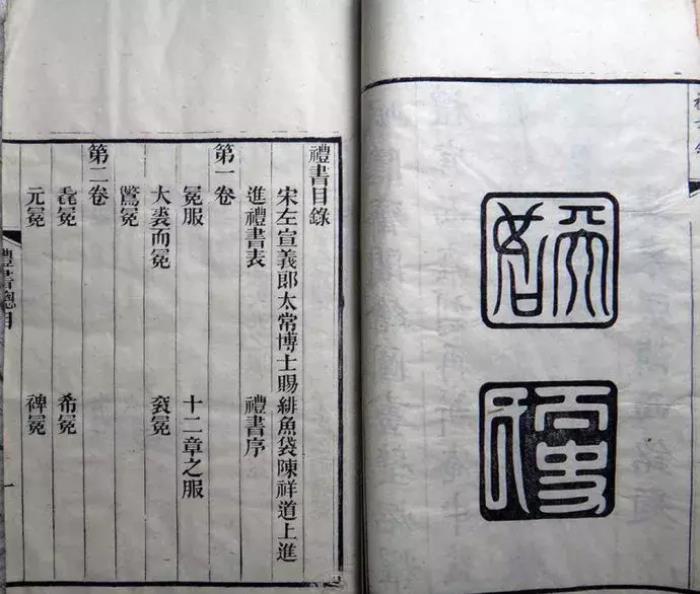 禮書目錄
宋左宣義郎太常博士賜緋魚袋陳祥道上進
進禮書表 禮書序
第一卷
冕服 十二章之服
大裘而冕 袞冕
鷩冕
第二卷
毳冕 希冕
元冕 裨冕
禮書總目